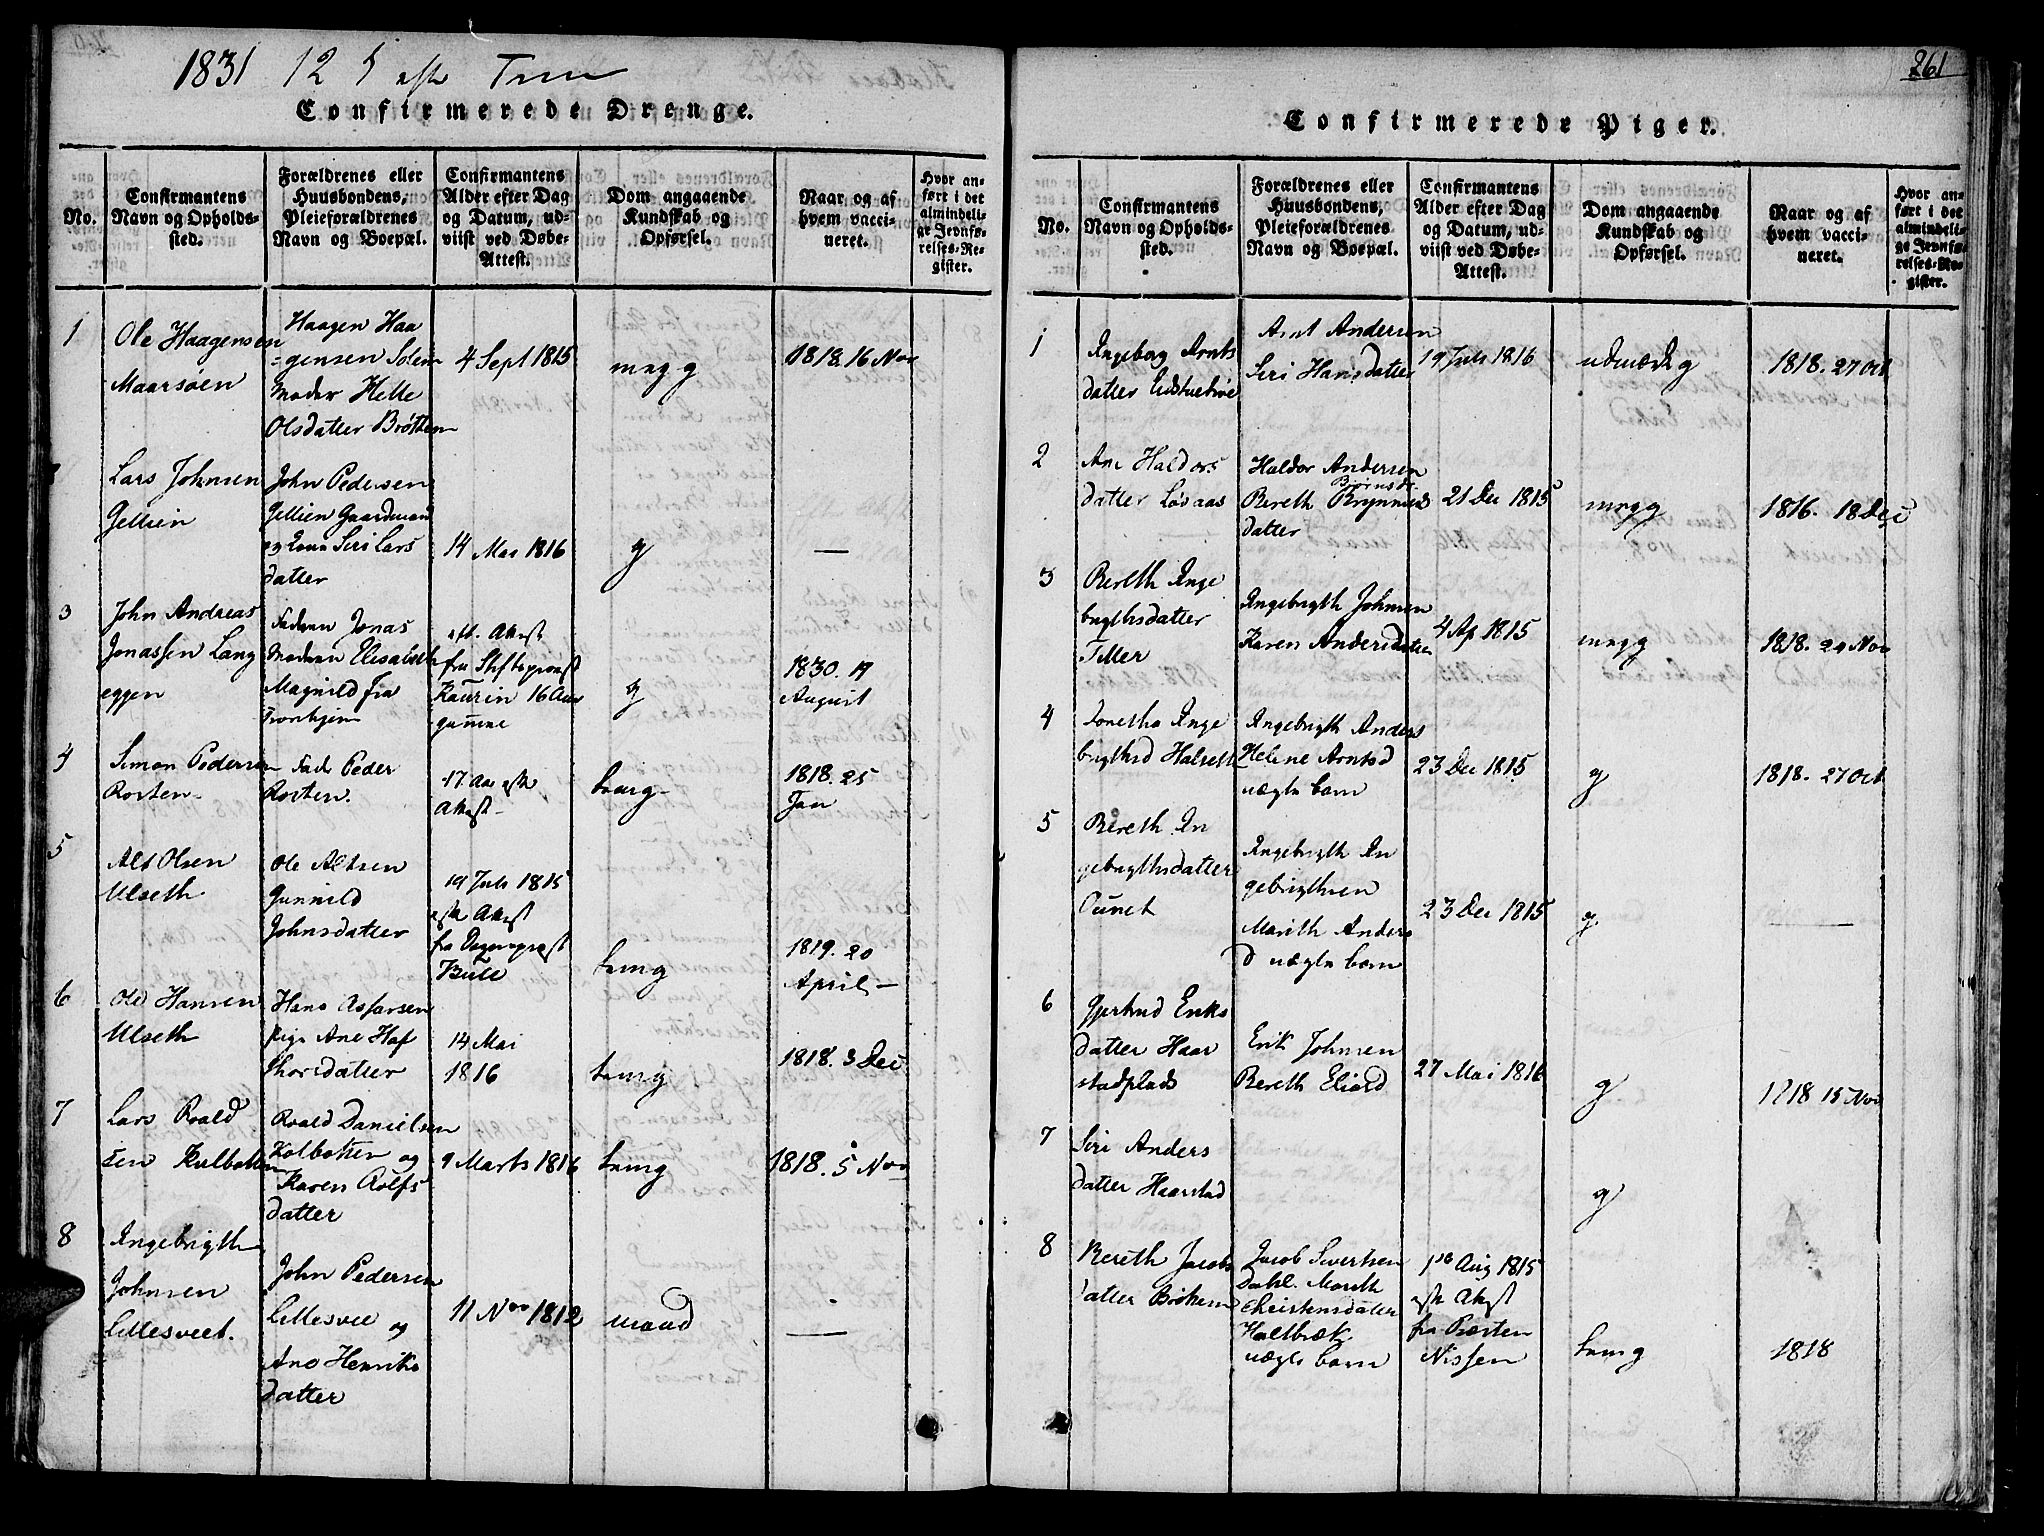 1831 12 S eft Trin
Confirmerede Drenge.
No.
Confirmantens Navn og Opholds-sted.
Forældrenes eller Huusbondens, Pleieforældrenes Navn og Boepæl.
Confirmantens Alder efter Dag og Datum, ud-viist ved Døbe-Attest.
Dom angaaende Kundskab og Opførsel.
Naar og af hvem vacci-neret.
Hvor an-ført i det almindeli-ge Jevnfø-relses-Re-gister.
1
Ole Haagensen
Maarsøen
Haagen Haa
=gensen Solem
Moder Helle
Olsdatter Brøttem
4 Sept 1815
meg g
1818. 16 Nov
Lars Johnsen
Gellien
John Pedersen
Gellien Gaardmand
og Kone Siri Lars
datter
14 Mai 1816
g
—
3
John Andreas
Jonassen Lang
eggen
Faderen Jonas
Moderen Elisabeth
Magnild fra
Tronhjem
eft. Attest
fra Stiftsprovst
Kaurin 16 Aar
gamme
g
1830. 17
August
4
Simon Pedersen
Rosten
Fader Peder
Rosten.
17 Aar efter
Attest
temg
1818. 25
Jan
5
Alt Olsen
Ulseth
Ole Altsen
Gunnild
Johnsdatter
19 Juli 1815
efter Attest
fra
Bull
temg
1819. 20
April —
6
Ole Hansen
Ulseth
Hans Assersen
pige Ane Haf
thorsdatter
14 Mai
1816
temg
1818. 3 Dec
7
Lars Roald
sen Kulbotten
Roald Danielsen
Kolbotten og
Karen Rolfs
datter
9 Marts 1816
temg
1818. 5 Nov
8
Ingebrigth
Johnsen
Lillesveet.
John Pedersen
Lillesvee og
Ane Henriks
datter
11 Nov 1812
maad
—
261
Confirmerede Piger.
No.
Confirmantens Navn og Opholds-sted.
Forældrenes eller Huusbondens, Pleieforældrenes Navn og Boepæl.
Confirmantens Alder efter Dag og Datum, ud-viist ved Døbe-Attest.
Dom angaaende Kundskab og Opførsel.
Naar og af hvem vacci-neret.
Hvor an-ført i det almindeli-ge Jevnfø-relses-Re-gister.
1
Ingeborg Arnts
datter Eidstuetrøe
Arnt Andersen
Siri Hansdatter
19 Juli 1816
udmærk g
1818. 27 Oct
2
Ane Haldors
datter Løvaas
Haldor Andersen
Bjørnsdr
Bereth Brynnils
datter
21 Dec 1815
megg
1816. 18 Dec
3
Bereth Inge
brigthsdatter
Tiller
Ingebrigth Johnsen
Karen Andersdatter
4 Ap 1815
megg
1818. 20 Nov
4
Jonetha Inge
brigthsd Halseth
Ingebrigth Anders
Helene Arntsd
uægte barn
23 Dec 1815
g
1818. 27 Oct
5
Bereth In
gebrigthsdatter
Ounet
Ingebrigth In
gebrigthsen
Marith Anders
d uægte barn
23 Dec 1815
g
—
6
Gjertrud Eriks
datter Haar
stadplads
Erik Johnsen
Bereth Eliasd
27 Mai 1816
g
1818 15 Nov
7
Siri Anders
datter Haarstad
g
8
Bereth Jacobs
datter Brøttem
Jacob Sivertsen
Dahl. Marith
Christensdatter
Holtbæk
uægte barn
1ste Aug 1815
efter Attest
fra Præsten
Nissen
temg
1818